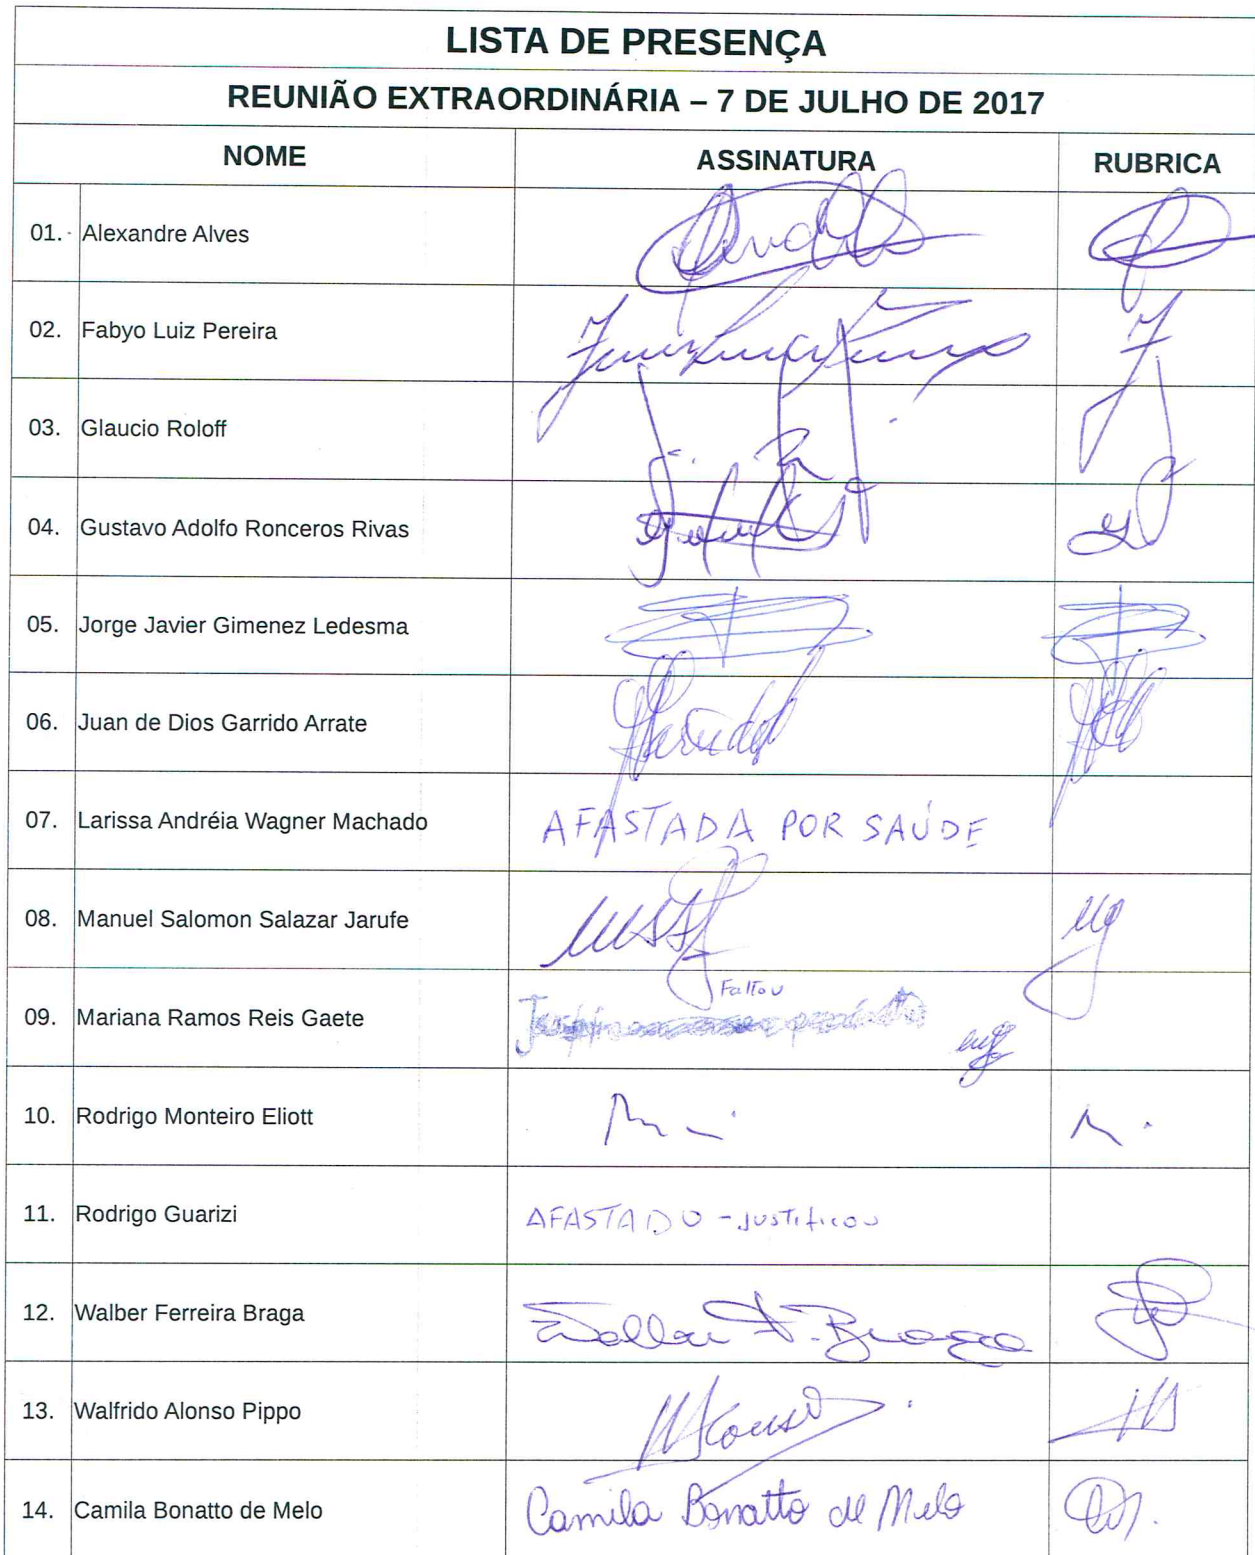 LISTA DE PRESENÇA
REUNIÃO EXTRAORDINÁRIA – 7 DE JULHO DE 2017
NOME ASSINATURA RUBRICA
01. Alexandre Alves
02. Fabyo Luiz Pereira
03. Glaucio Roloff
04. Gustavo Adolfo Ronceros Rivas
05. Jorge Javier Gimenez Ledesma
06. Juan de Dios Garrido Arrate
07. Larissa Andréia Wagner Machado AFASTADA POR SAÚDE
08. Manuel Salomon Salazar Jarufe
09. Mariana Ramos Reis Gaete Faltou
10. Rodrigo Monteiro Eliott
11. Rodrigo Guarizi AFASTADO - JUSTIFICOU
12. Walber Ferreira Braga Walber F. Braga
13. Walfrido Alonso Pippo
14. Camila Bonatto de Melo Camila Bonatto de Melo